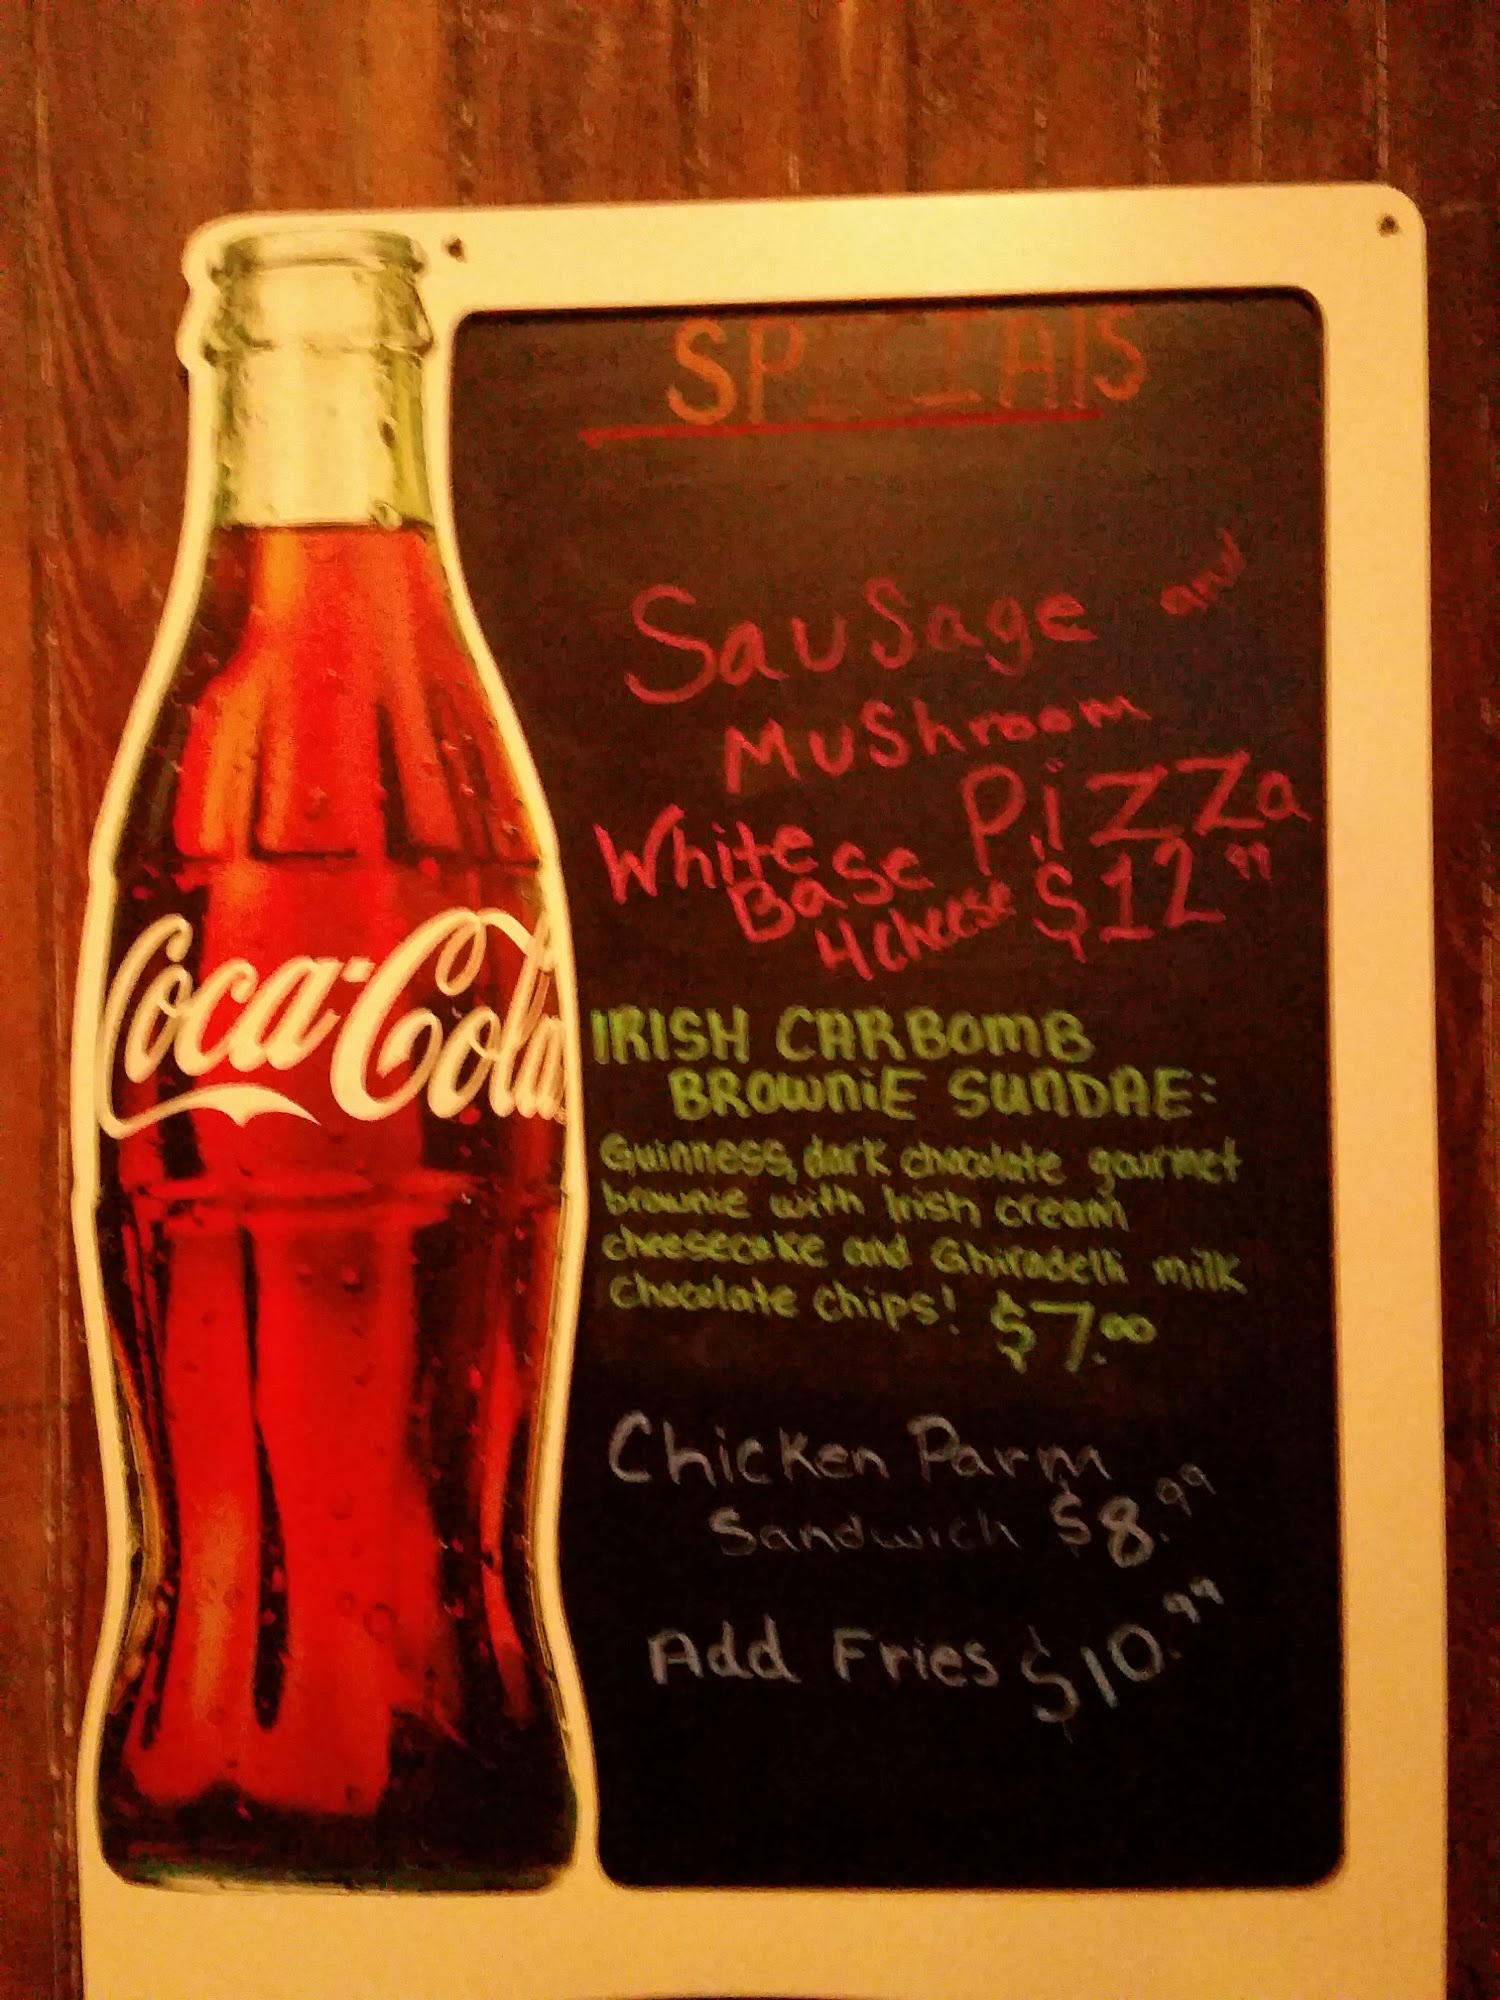 SPECIAlS
Sausage and
Mushroom
Pizza
White
Base
4 cheese $12.99
Coca-Cola
IRISH CARBOMB
BROWNiE SUNDAE:
Guinness, dark chocolate gourmet
brownie with Irish cream
cheesecake and Ghiradelli milk
chocolate chips! $7.00
Chicken Parm
Sandwich $8.99
Add Fries $10.99